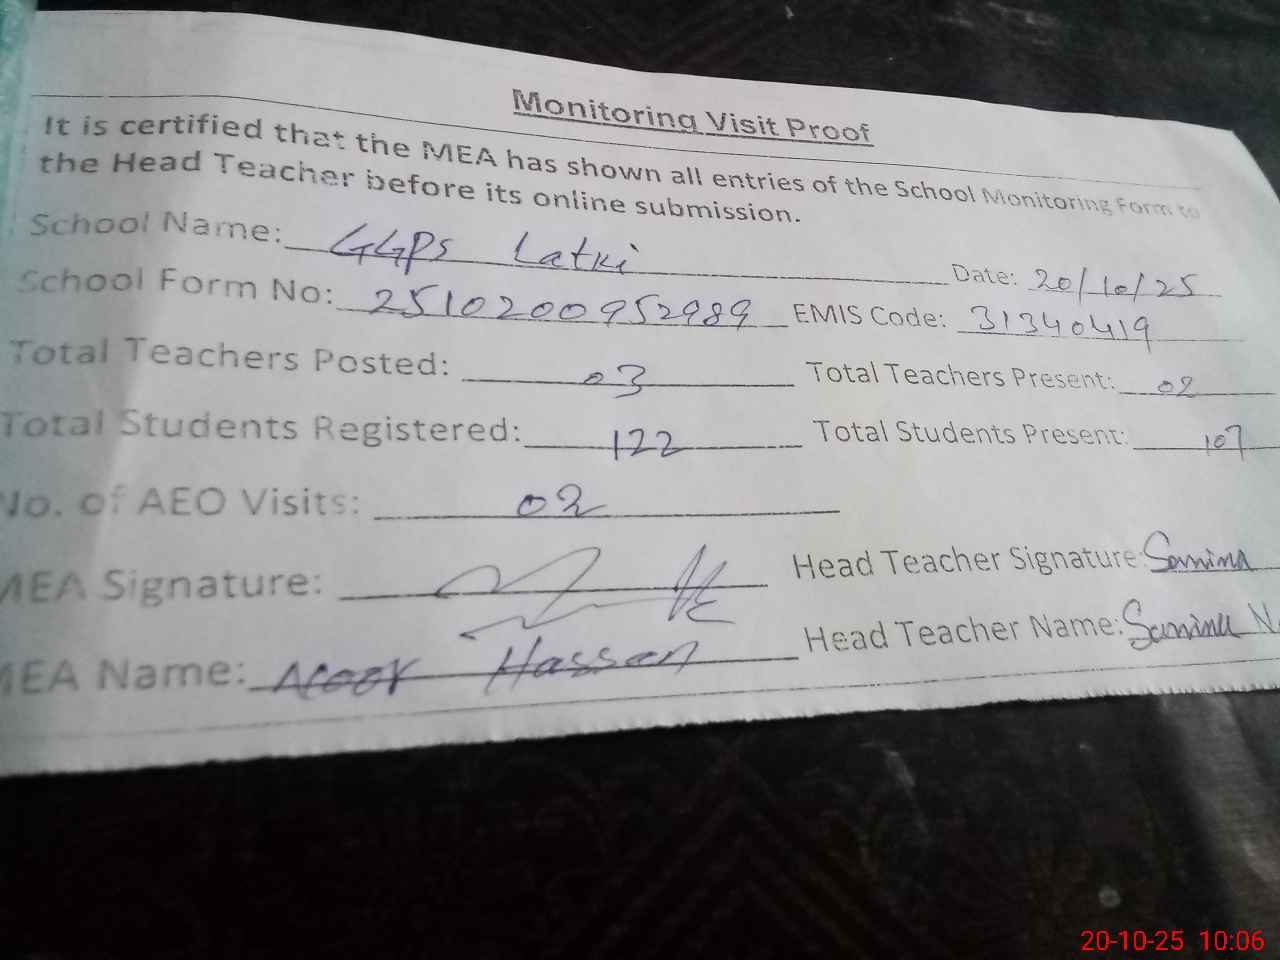 Monitoring Visit Proof
It is certified that the MEA has shown all entries of the School Monitoring Form to
the Head Teacher before its online submission.
School Name: GGPS Latki Date: 20/10/25
School Form No: 2510200952989 EMIS Code: 31340419
Total Teachers Posted: 03 Total Teachers Present: 02
Total Students Registered: 122 Total Students Present: 107
No. of AEO Visits: 02
MEA Signature: Head Teacher Signature: Samina
MEA Name: Hassan Head Teacher Name: Samina
20-10-25 10:06